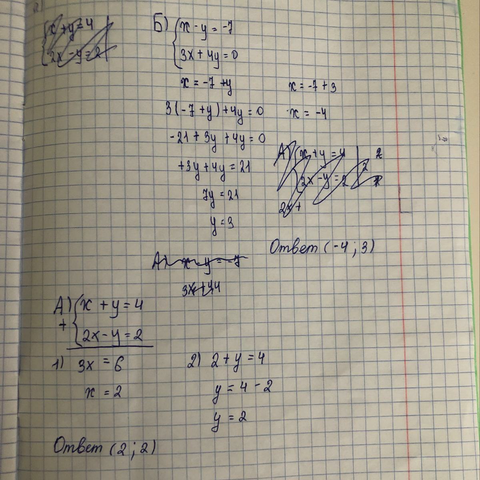 x + y = 4
2x - y = 2
Б) x - y = -7
3x + 4y = 0
x = -7 + y
3(-7 + y) + 4y = 0
-21 + 3y + 4y = 0
+3y + 4y = 21
7y = 21
y = 3
x = -7 + 3
x = -4
А) x + y = 4 | 2
2x - y = 2
2x +
Ответ (-4; 3)
А) x - y = -7
3x + 4y
А) x + y = 4
+ 2x - y = 2
1) 3x = 6
x = 2
2) 2 + y = 4
y = 4 - 2
y = 2
Ответ (2; 2)